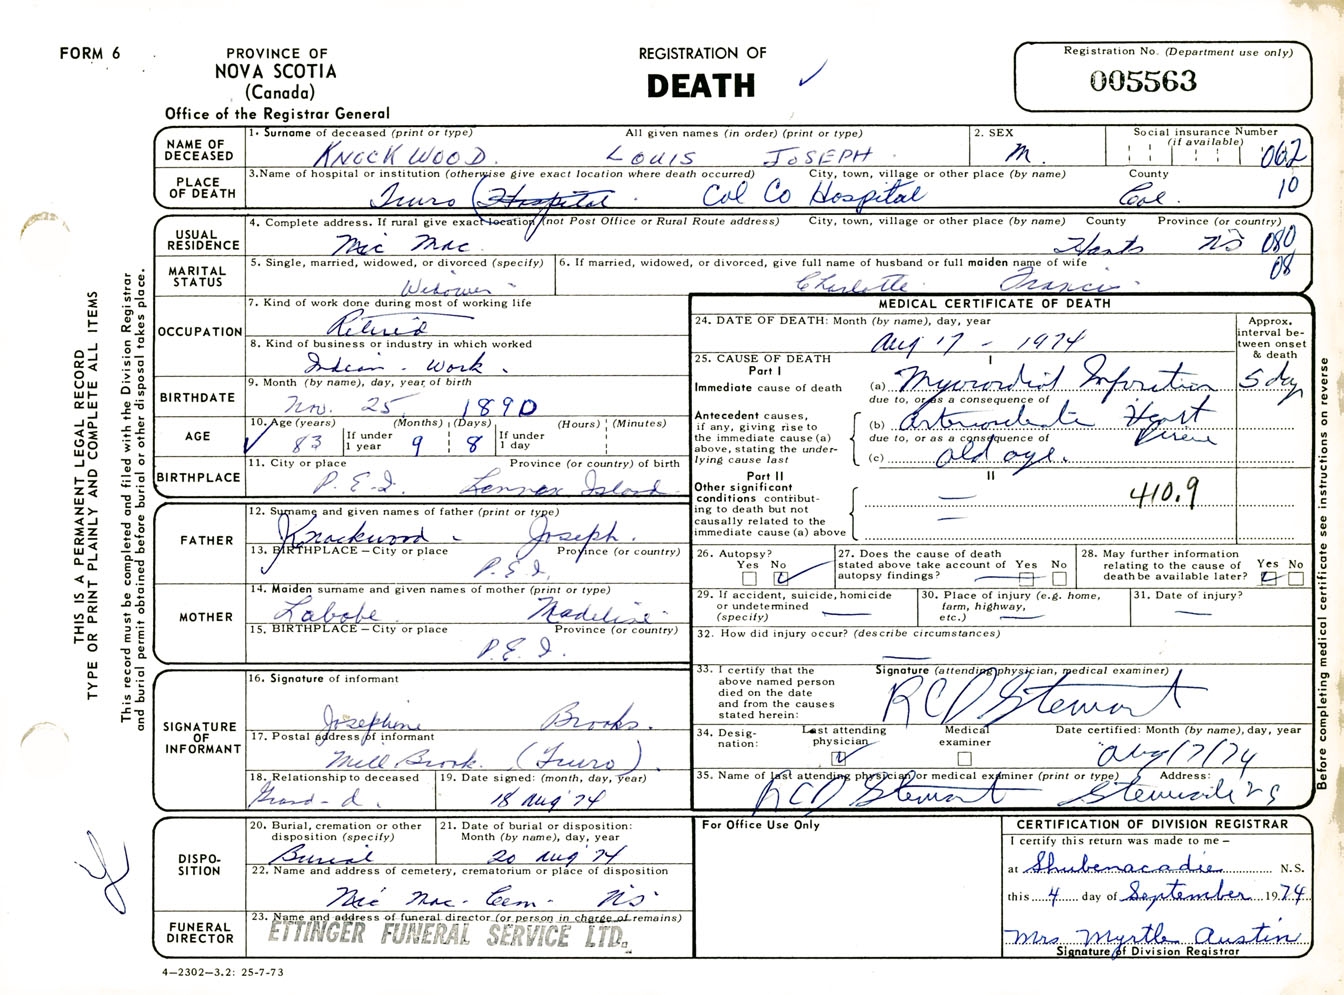 FORM 6
PROVINCE OF
NOVA SCOTIA
(Canada)
Office of the Registrar General
REGISTRATION OF
DEATH
Registration No. (Department use only)
005563
NAME OF DECEASED
1. Surname of deceased (print or type) All given names (in order) (print or type)
KNOCKWOOD. LOUIS JOSEPH.
2. SEX
M.
Social insurance Number (if available)
062
PLACE OF DEATH
3. Name of hospital or institution (otherwise give exact location where death occurred) City, town, village or other place (by name) County
Truro Hospital. Col Co Hospital Col. 10
USUAL RESIDENCE
4. Complete address. If rural give exact location (not Post Office or Rural Route address) City, town, village or other place (by name) County Province (or country)
Mic Mac. Hants NS 080
08
MARITAL STATUS
5. Single, married, widowed, or divorced (specify)
Widower
6. If married, widowed, or divorced, give full name of husband or full maiden name of wife
Charlotte Francis
OCCUPATION
7. Kind of work done during most of working life
Retired
8. Kind of business or industry in which worked
Indian - Work.
BIRTHDATE
9. Month (by name), day, year of birth
Nov. 25, 1890
AGE
10. Age (years) (Months) (Days) (Hours) (Minutes)
83 If under 1 year 9 8 If under 1 day
BIRTHPLACE
11. City or place Province (or country) of birth
P.E.I. Lennox Island
FATHER
12. Surname and given names of father (print or type)
Knockwood - Joseph.
13. BIRTHPLACE – City or place Province (or country)
P.E.I.
MOTHER
14. Maiden surname and given names of mother (print or type)
Labobe. Madeline
15. BIRTHPLACE – City or place Province (or country)
P.E.I.
SIGNATURE OF INFORMANT
16. Signature of informant
Josephine Brooks.
17. Postal address of informant
Mill Brook. (Truro)
18. Relationship to deceased
Grand-d.
19. Date signed: (month, day, year)
18 Aug '74
DISPOSITION
20. Burial, cremation or other disposition (specify)
Burial
21. Date of burial or disposition: Month (by name), day, year
20 Aug '74
22. Name and address of cemetery, crematorium or place of disposition
Mic Mac - Cem - NS
FUNERAL DIRECTOR
23. Name and address of funeral director (or person in charge of remains)
ETTINGER FUNERAL SERVICE LTD.
4—2302—3.2: 25-7-73
MEDICAL CERTIFICATE OF DEATH
24. DATE OF DEATH: Month (by name), day, year
Aug 17 - 1974
Approx. interval between onset & death
25. CAUSE OF DEATH
Part I
I
Immediate cause of death
(a) Myocardial Infarction 5 day
due to, or as a consequence of
Antecedent causes, if any, giving rise to the immediate cause (a) above, stating the underlying cause last
(b) Heart
due to, or as a consequence of
(c) old age.
Part II
II
Other significant conditions contributing to death but not causally related to the immediate cause (a) above
410.9
26. Autopsy?
Yes No
27. Does the cause of death stated above take account of autopsy findings?
Yes No
28. May further information relating to the cause of death be available later?
Yes No
29. If accident, suicide, homicide or undetermined (specify)
30. Place of injury (e.g. home, farm, highway, etc.)
31. Date of injury?
32. How did injury occur? (describe circumstances)
33. I certify that the above named person died on the date and from the causes stated herein:
Signature (attending physician, medical examiner)
RCD Stewart
34. Designation:
Last attending physician
Medical examiner
Date certified: Month (by name), day, year
Aug 17/74
35. Name of last attending physician or medical examiner (print or type) Address:
RCD Stewart
For Office Use Only
CERTIFICATION OF DIVISION REGISTRAR
I certify this return was made to me —
at Shubenacadie N.S.
this 4 day of September 1974
Mrs Myrtle Austin
Signature of Division Registrar
THIS IS A PERMANENT LEGAL RECORD
TYPE OR PRINT PLAINLY AND COMPLETE ALL ITEMS
This record must be completed and filed with the Division Registrar
and burial permit obtained before burial or other disposal takes place.
Before completing medical certificate see instructions on reverse